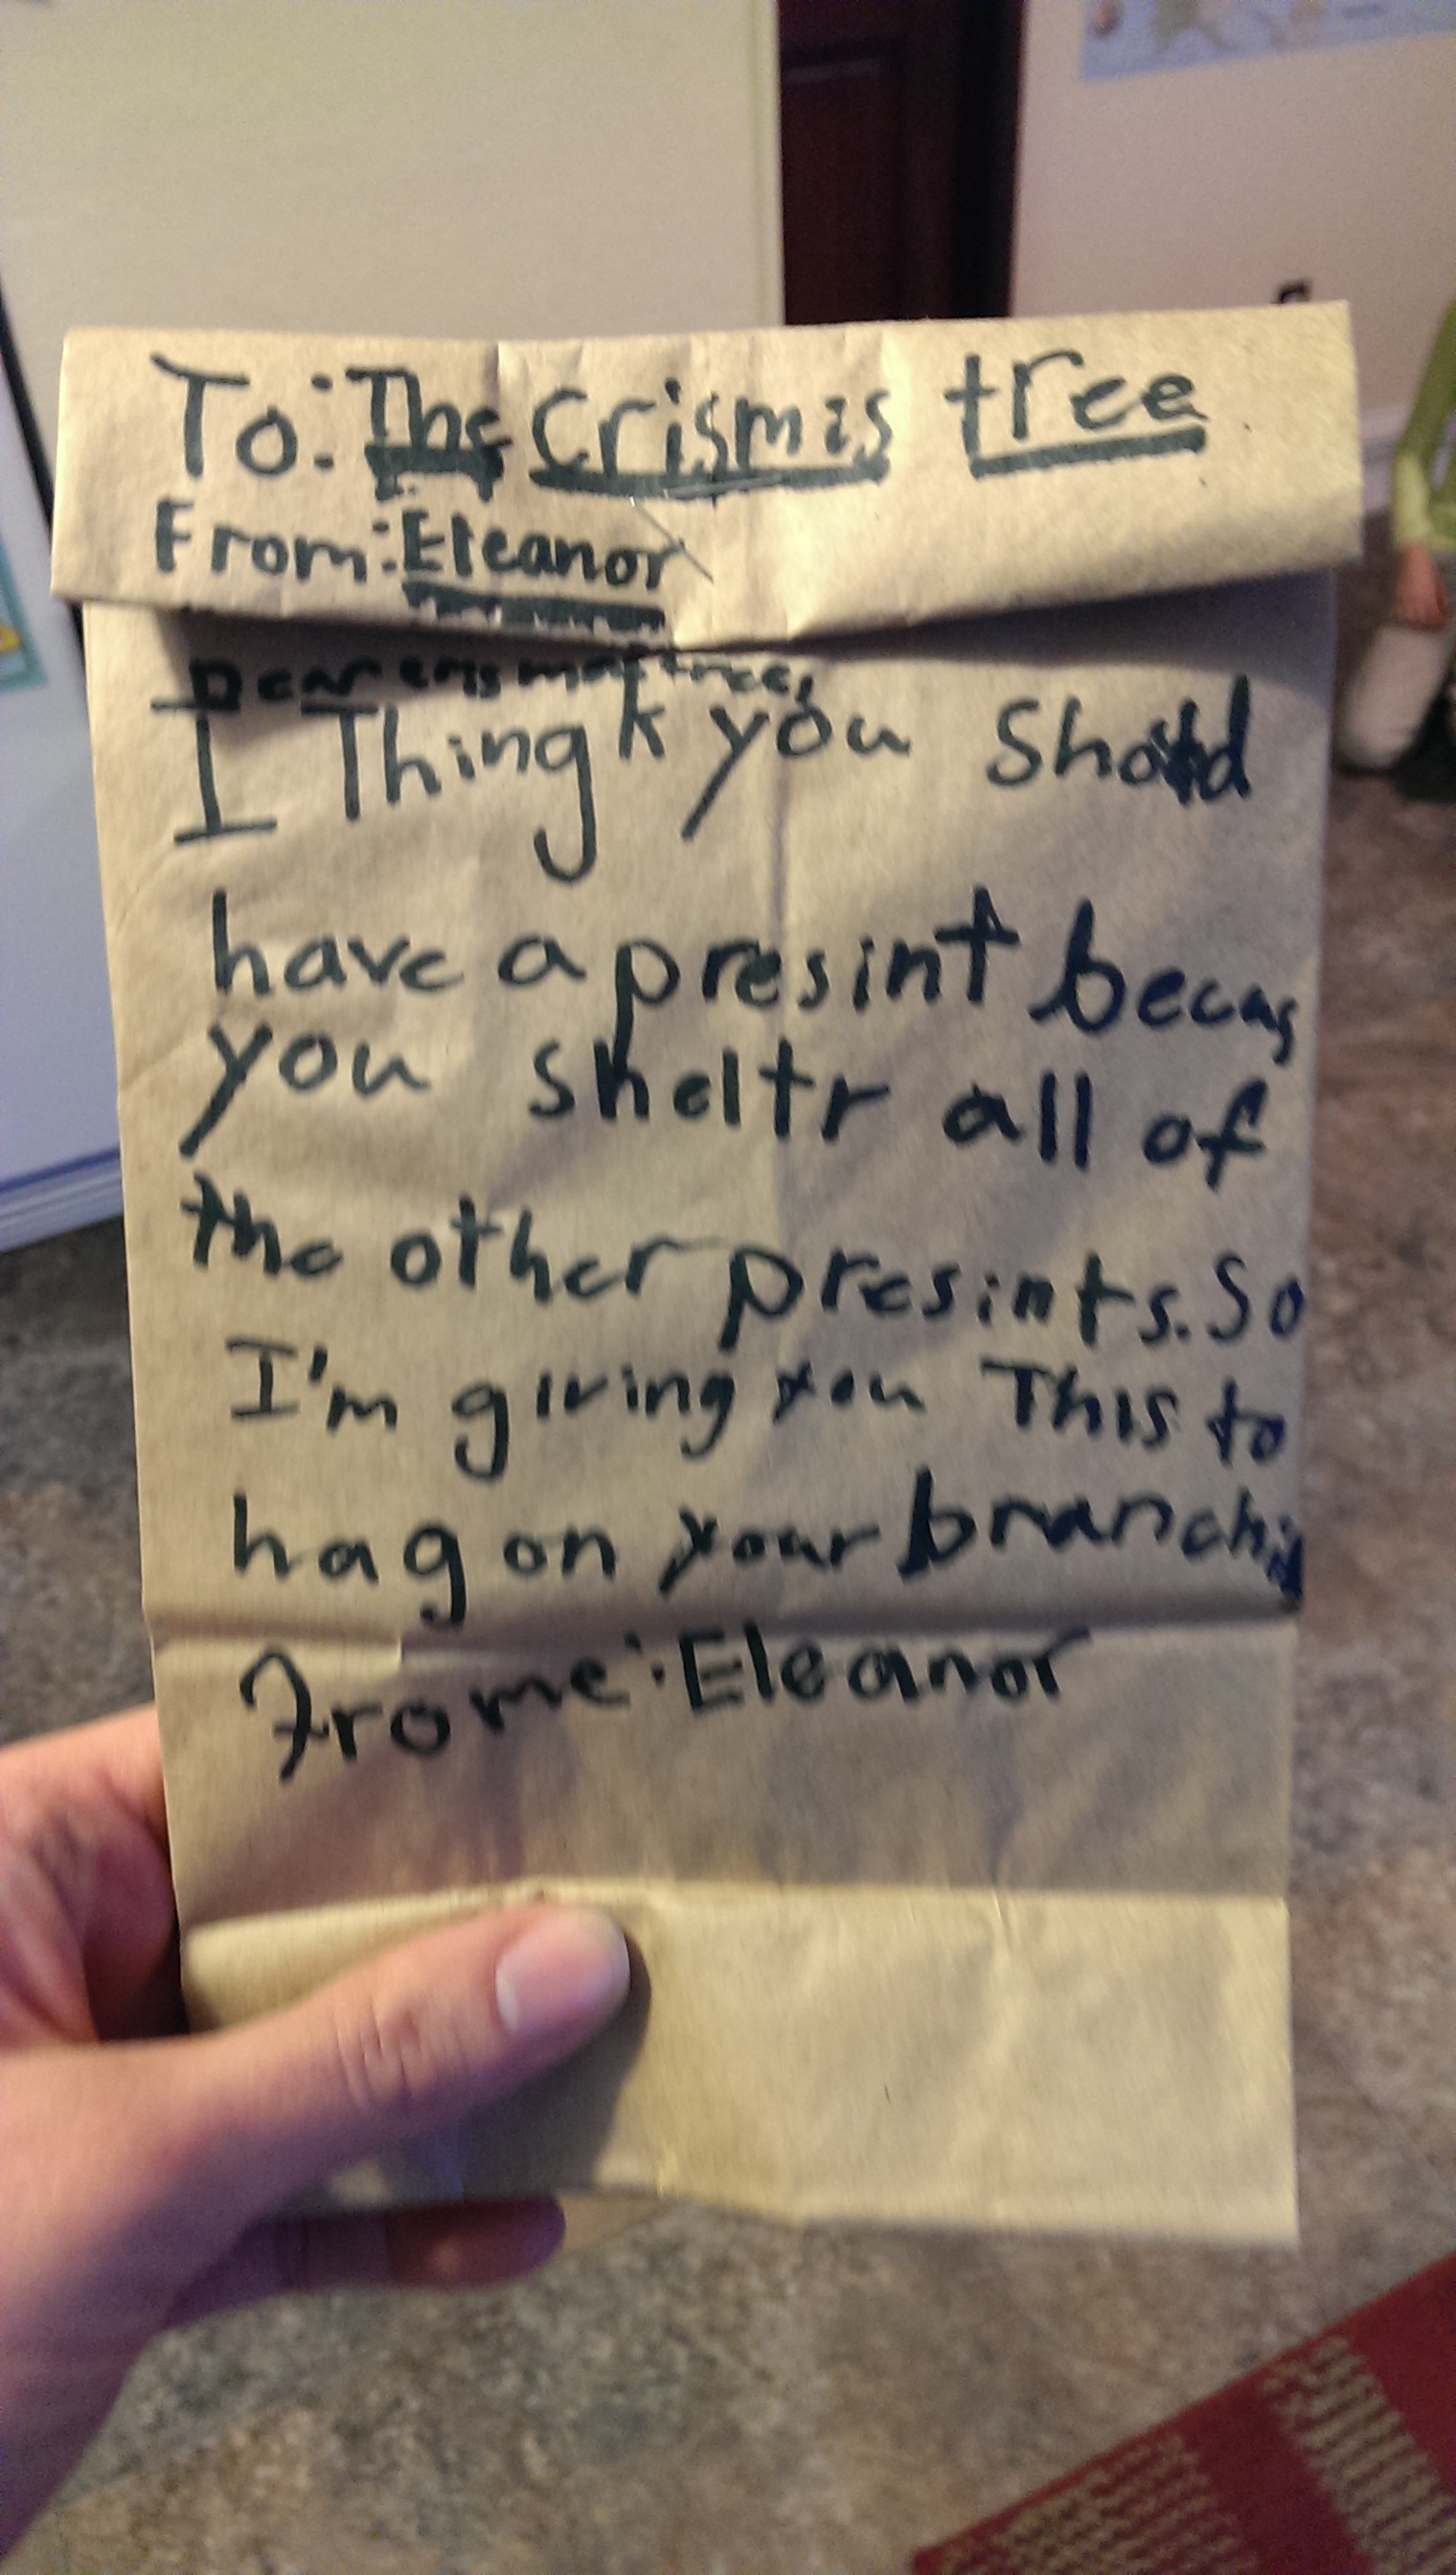 To: The Crismis tree
From: Eleanor
Dear crismas tree,
I Thingk you Shold
have a presint becas
you sheltr all of
the other presints. So
I'm giving you This to
hag on your branchis
Frome: Eleanor